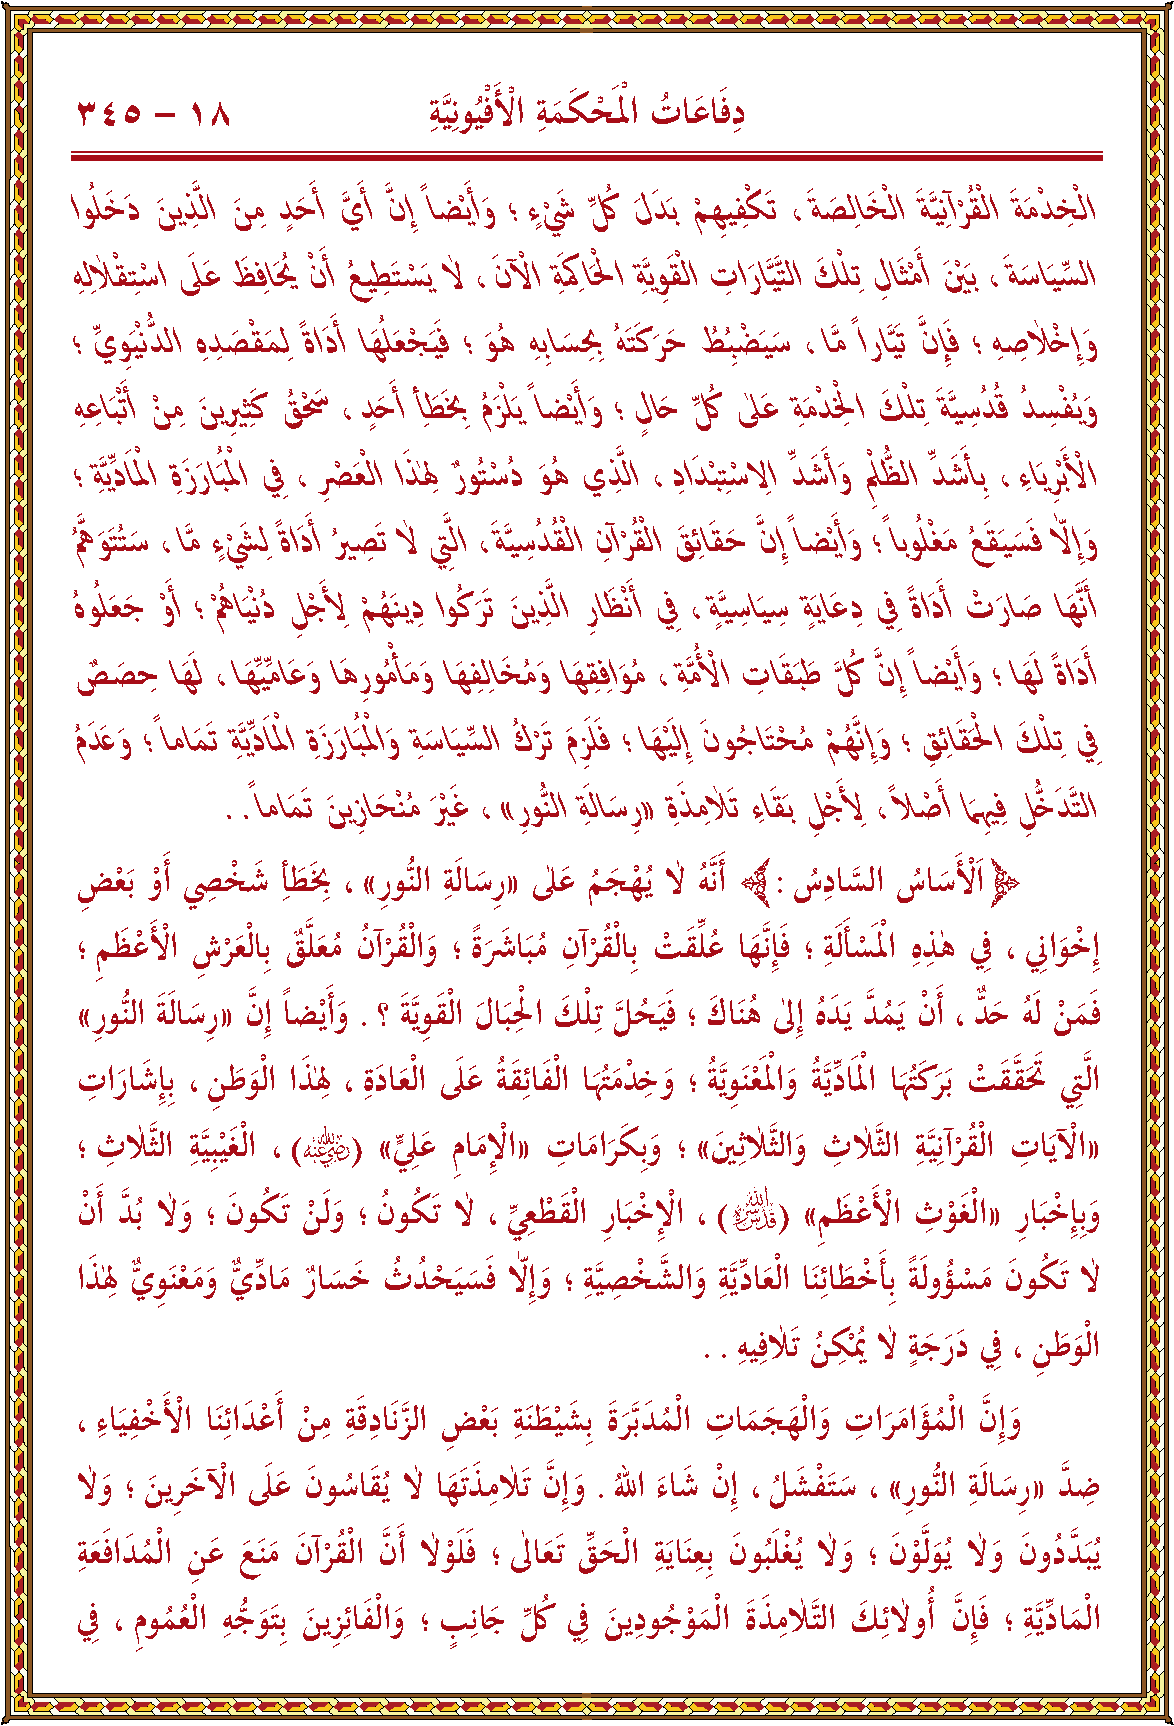 دِفَاعَاتُ الْمَحْكَمَةِ الْأَفْيُونِيَّةِ ١٨ – ٣٤٥
الْخِدْمَةَ الْقُرْآنِيَّةَ الْخَالِصَةَ ، تَكْفِيهِمْ بَدَلَ كُلِّ شَيْءٍ ؛ وَأَيْضاً إِنَّ أَيَّ أَحَدٍ مِنَ الَّذِينَ دَخَلُوا
السِّيَاسَةَ ، بَيْنَ أَمْثَالِ تِلْكَ التَّيَّارَاتِ الْقَوِيَّةِ الْحَاكِمَةِ الْآنَ ، لَا يَسْتَطِيعُ أَنْ يُحَافِظَ عَلَى اسْتِقْلَالِهِ
وَإِخْلَاصِهِ ؛ فَإِنَّ تَيَّاراً مَّا ، سَيَضْبُطُ حَرَكَتَهُ بِحِسَابِهِ هُوَ ؛ فَيَجْعَلُهَا أَدَاةً لِمَقْصَدِهِ الدُّنْيَوِيِّ ؛
وَيُفْسِدُ قُدُسِيَّةَ تِلْكَ الْخِدْمَةِ عَلَى كُلِّ حَالٍ ؛ وَأَيْضاً يَلْزَمُ بِخَطَأِ أَحَدٍ ، سَحْقُ كَثِيرِينَ مِنْ أَتْبَاعِهِ
الْأَبْرِيَاءِ ، بِأَشَدِّ الظُّلْمِ وَأَشَدِّ الِاسْتِبْدَادِ ، الَّذِي هُوَ دُسْتُورٌ لِهٰذَا الْعَصْرِ ، فِي الْمُبَارَزَةِ الْمَادِّيَّةِ ؛
وَإِلَّا فَسَيَقَعُ مَغْلُوباً ؛ وَأَيْضاً إِنَّ حَقَائِقَ الْقُرْآنِ الْقُدُسِيَّةَ ، الَّتِي لَا تَصِيرُ أَدَاةً لِشَيْءٍ مَّا ، سَتُتَوَهَّمُ
أَنَّهَا صَارَتْ أَدَاةً فِي دِعَايَةٍ سِيَاسِيَّةٍ ، فِي أَنْظَارِ الَّذِينَ تَرَكُوا دِينَهُمْ لِأَجْلِ دُنْيَاهُمْ ؛ أَوْ جَعَلُوهُ
أَدَاةً لَهَا ؛ وَأَيْضاً إِنَّ كُلَّ طَبَقَاتِ الْأُمَّةِ ، مُوَافِقِهَا وَمُخَالِفِهَا وَمَأْمُورِهَا وَعَامِّيِّهَا ، لَهَا حِصَصٌ
فِي تِلْكَ الْحَقَائِقِ ؛ وَإِنَّهُمْ مُحْتَاجُونَ إِلَيْهَا ؛ فَلَزِمَ تَرْكُ السِّيَاسَةِ وَالْمُبَارَزَةِ الْمَادِّيَّةِ تَمَاماً ؛ وَعَدَمُ
التَّدَخُّلِ فِيهِمَا أَصْلاً ، لِأَجْلِ بَقَاءِ تَلَامِذَةِ «رِسَالَةِ النُّورِ» ، غَيْرَ مُنْحَازِينَ تَمَاماً . .
﴿ اَلْأَسَاسُ السَّادِسُ : ﴾ أَنَّهُ لَا يُهْجَمُ عَلَى «رِسَالَةِ النُّورِ» ، بِخَطَأِ شَخْصِي أَوْ بَعْضِ
إِخْوَانِي ، فِي هٰذِهِ الْمَسْأَلَةِ ؛ فَإِنَّهَا عُلِّقَتْ بِالْقُرْآنِ مُبَاشَرَةً ؛ وَالْقُرْآنُ مُعَلَّقٌ بِالْعَرْشِ الْأَعْظَمِ ؛
فَمَنْ لَهُ حَدٌّ ، أَنْ يَمُدَّ يَدَهُ إِلَى هُنَاكَ ؛ فَيَحُلَّ تِلْكَ الْحِبَالَ الْقَوِيَّةَ ؟ . وَأَيْضاً إِنَّ «رِسَالَةَ النُّورِ»
الَّتِي تَحَقَّقَتْ بَرَكَتُهَا الْمَادِّيَّةُ وَالْمَعْنَوِيَّةُ ؛ وَخِدْمَتُهَا الْفَائِقَةُ عَلَى الْعَادَةِ ، لِهٰذَا الْوَطَنِ ، بِإِشَارَاتِ
«الْآيَاتِ الْقُرْآنِيَّةِ الثَّلَاثِ وَالثَّلَاثِينَ» ؛ وَبِكَرَامَاتِ «الْإِمَامِ عَلِيٍّ» (رضي الله عنه) ، الْغَيْبِيَّةِ الثَّلَاثِ ؛
وَبِإِخْبَارِ «الْغَوْثِ الْأَعْظَمِ» (قدس الله سره) ، الْإِخْبَارِ الْقَطْعِيِّ ، لَا تَكُونُ ؛ وَلَنْ تَكُونَ ؛ وَلَا بُدَّ أَنْ
لَا تَكُونَ مَسْؤُولَةً بِأَخْطَائِنَا الْعَادِّيَّةِ وَالشَّخْصِيَّةِ ؛ وَإِلَّا فَسَيَحْدُثُ خَسَارٌ مَادِّيٌّ وَمَعْنَوِيٌّ لِهٰذَا
الْوَطَنِ ، فِي دَرَجَةٍ لَا يُمْكِنُ تَلَافِيهِ . .
وَإِنَّ الْمُؤَامَرَاتِ وَالْهَجَمَاتِ الْمُدَبَّرَةَ بِشَيْطَنَةِ بَعْضِ الزَّنَادِقَةِ مِنْ أَعْدَائِنَا الْأَخْفِيَاءِ ،
ضِدَّ «رِسَالَةِ النُّورِ» ، سَتَفْشَلُ ، إِنْ شَاءَ اللهُ . وَإِنَّ تَلَامِذَتَهَا لَا يُقَاسُونَ عَلَى الْآخَرِينَ ؛ وَلَا
يُبَدَّدُونَ وَلَا يُوَلَّوْنَ ؛ وَلَا يُغْلَبُونَ بِعِنَايَةِ الْحَقِّ تَعَالَى ؛ فَلَوْلَا أَنَّ الْقُرْآنَ مَنَعَ عَنِ الْمُدَافَعَةِ
الْمَادِّيَّةِ ؛ فَإِنَّ أُولَائِكَ التَّلَامِذَةَ الْمَوْجُودِينَ فِي كُلِّ جَانِبٍ ؛ وَالْفَائِزِينَ بِتَوَجُّهِ الْعُمُومِ ، فِي